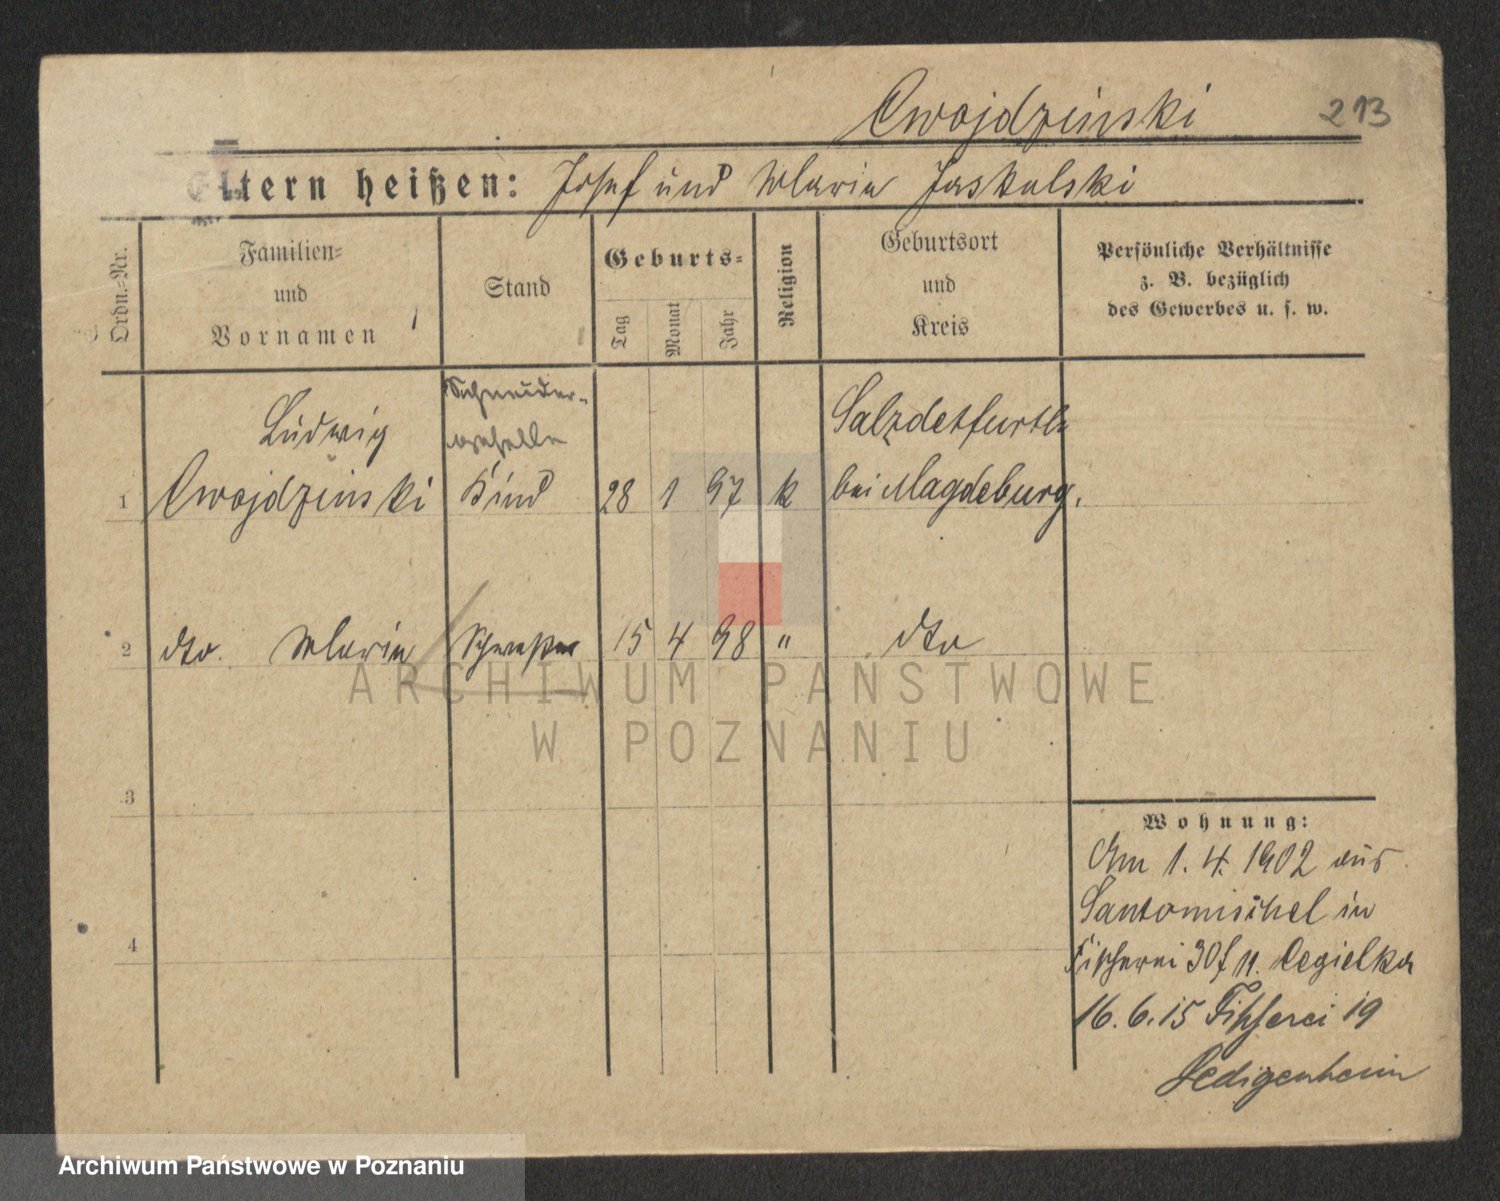 Cwojdzinski 213
Eltern heißen: Josef und Maria Jaskulski
Ordn.=Nr.
Familien=
und
Vornamen
Stand
Geburts=
Tag
Monat
Jahr
Religion
Geburtsort
und
Kreis
Persönliche Verhältnisse
z. B. bezüglich
des Gewerbes u. s. w.
Schneider-
geselle
Ludwig
Salzdetfurth
1 Cwojdzinski Kind 28 1 97 k bei Magdeburg.
2 dto. Maria Schwester 15 4 98 " dto
ARCHIWUM PAŃSTWOWE
W POZNANIU
3
4
Wohnung:
Am 1. 4. 1902 aus
Santomischel in
Fischerei 30 f n. Cegielka
16. 6. 15 Fischerei 19
Ledigenheim
Archiwum Państwowe w Poznaniu